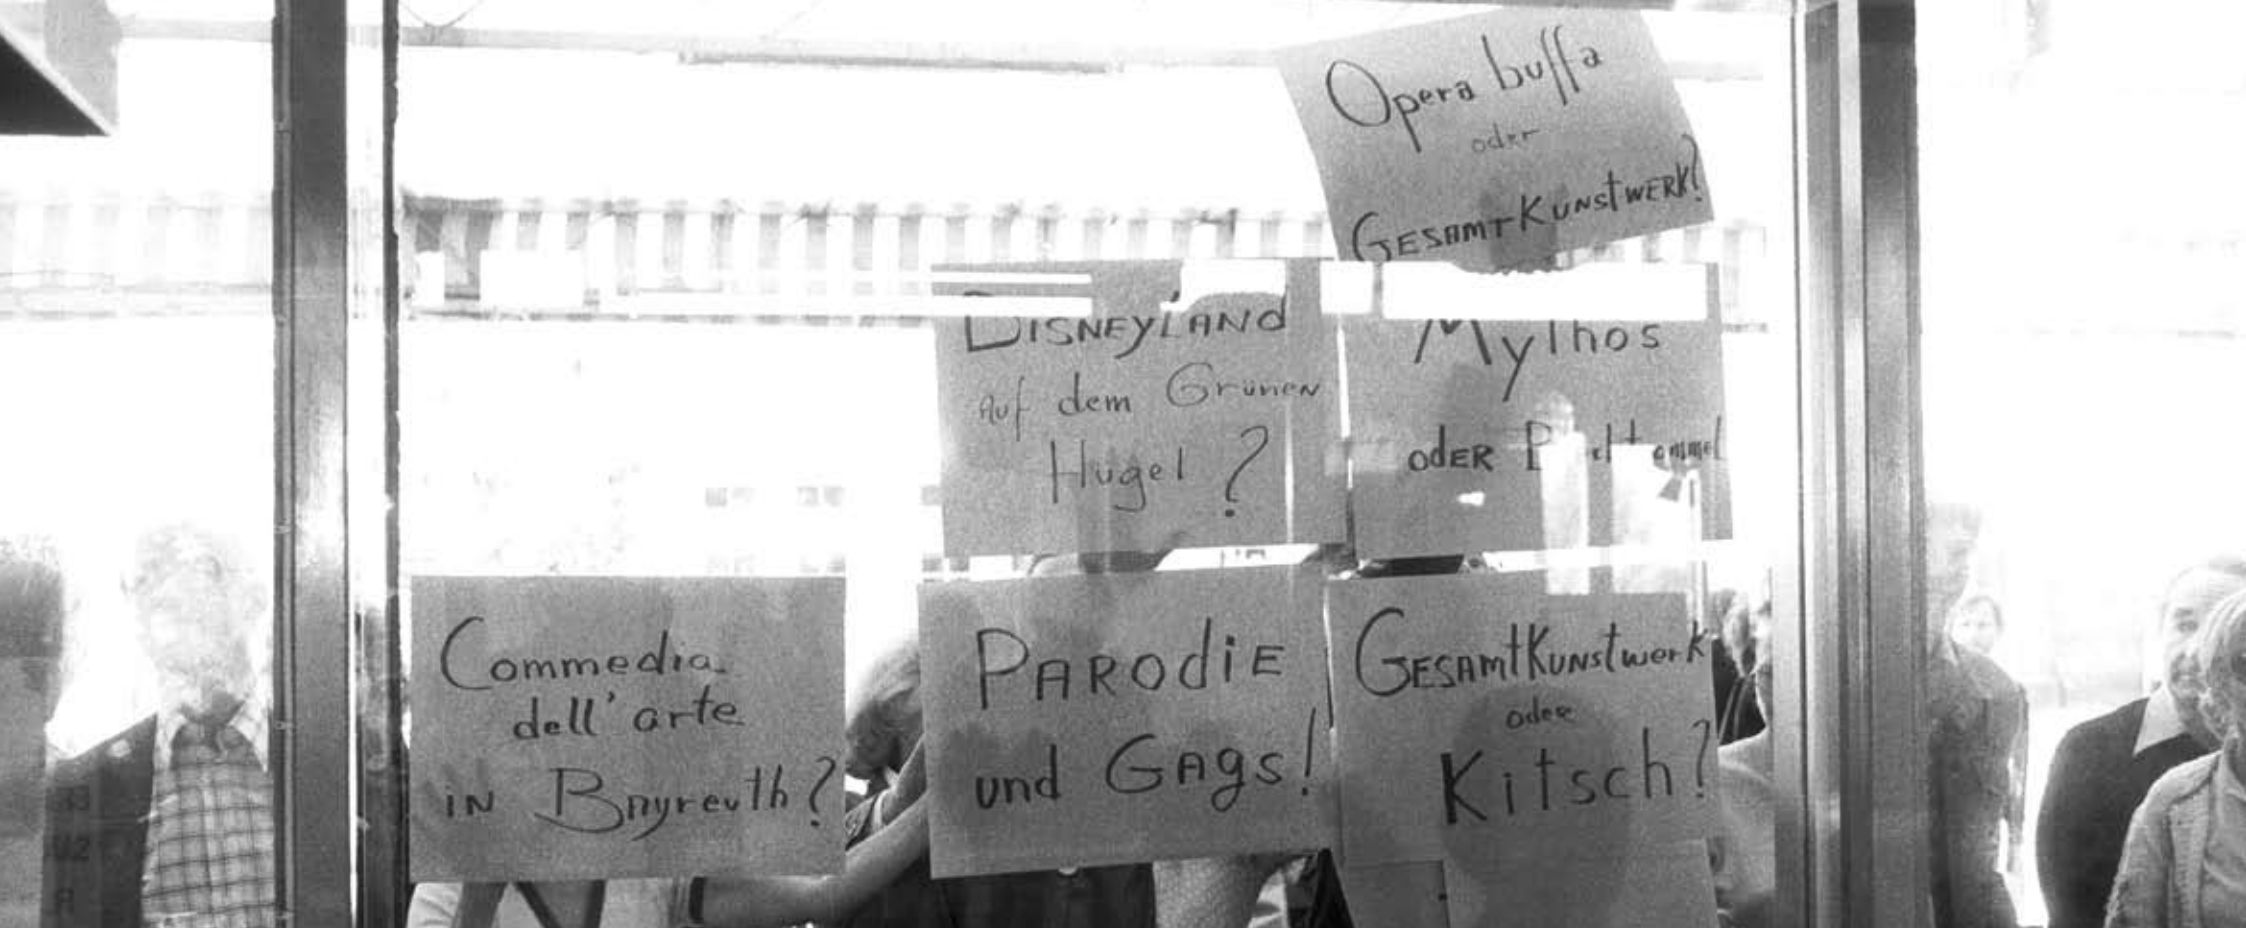 Opera buffa
oder
GESAMTKUNSTWERK?
DISNEYLAND
Auf dem Grünen
Hügel ?
Mythos
ODER
Commedia
dell'arte
IN Bayreuth?
PARODIE
und GAgs!
GESAMTKUNSTwerk
oder
Kitsch?